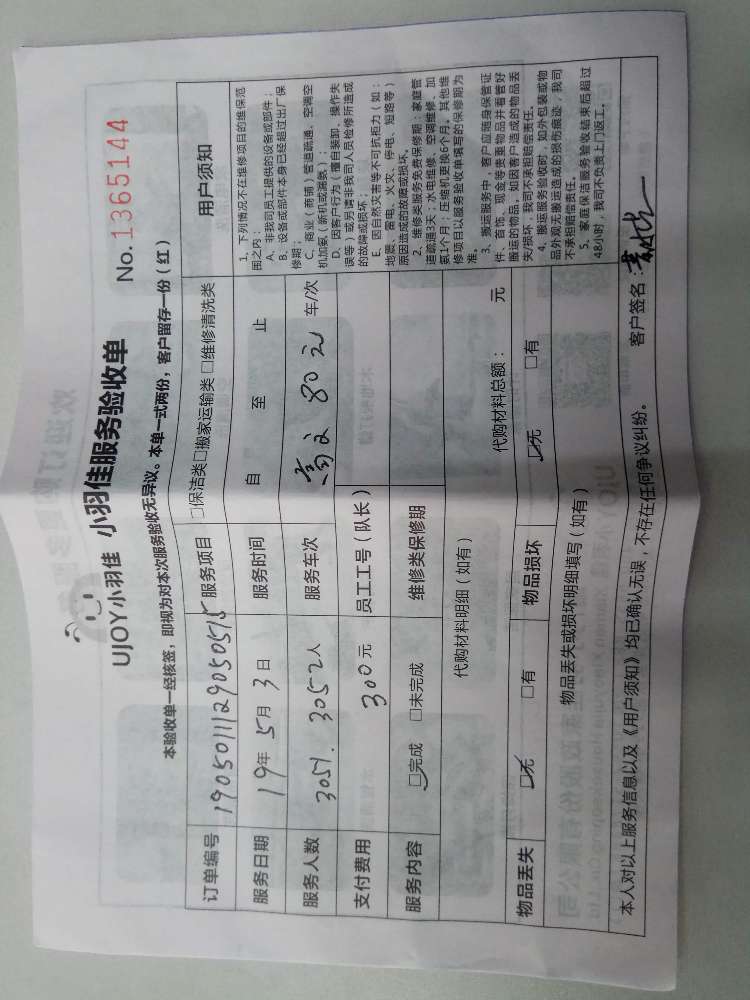 UJOY小羽佳 小羽佳服务验收单
No. 1365144
本验收单一经核签，即视为对本次服务验收无异议。本单一式两份，客户留存一份（红）
订单编号 19050111290505 服务项目 □保洁类□搬家运输类□维修清洗类
服务日期 19年5月3日 服务时间 自 至 止
服务人数 3051. 3052人 服务车次 80元 车/次
支付费用 300元 员工工号（队长）
服务内容 ☑完成 □未完成 维修类保修期
代购材料明细（如有） 代购材料总额： 元
物品丢失 ☑无 □有 物品损坏 ☑无 □有
物品丢失或损坏明细填写（如有）
用户须知
1、下列情况不在维修项目的维保范
围之内：
A、非我司员工提供的设备或部件；
B、设备或部件本身已经超过出厂保
修期；
C、商业（商铺）管道疏通、空调空
机加氨、新机或漏氨）；
D、因客户行为（擅自装卸、操作失
误等）或另请非我司人员检修所造成
的故障或损坏；
E、因自然灾害等不可抗拒力（如：
地震、雷电、火灾、停电、短路等）
原因造成的故障或损坏。
2、维修类服务免费保修期：家庭管
道疏通3天；水电维修、空调维修、加
氨1个月；压缩机更换6个月。其他维
修项目以服务验收单填写的保修期为
准。
3、搬运服务中，客户应随身保管证
件、首饰、现金等贵重物品并看管好
搬运的物品，如因客户造成的物品丢
失/损坏，我司不承担赔偿责任。
4、搬运服务验收时，如外包装或物
品外观无搬运造成的损伤痕迹，我司
不承担赔偿责任。
5、家庭保洁服务验收结束后超过
48小时，我司不负责上门返工。
本人对以上服务信息以及《用户须知》均已确认无误，不存在任何争议纠纷。 客户签名：